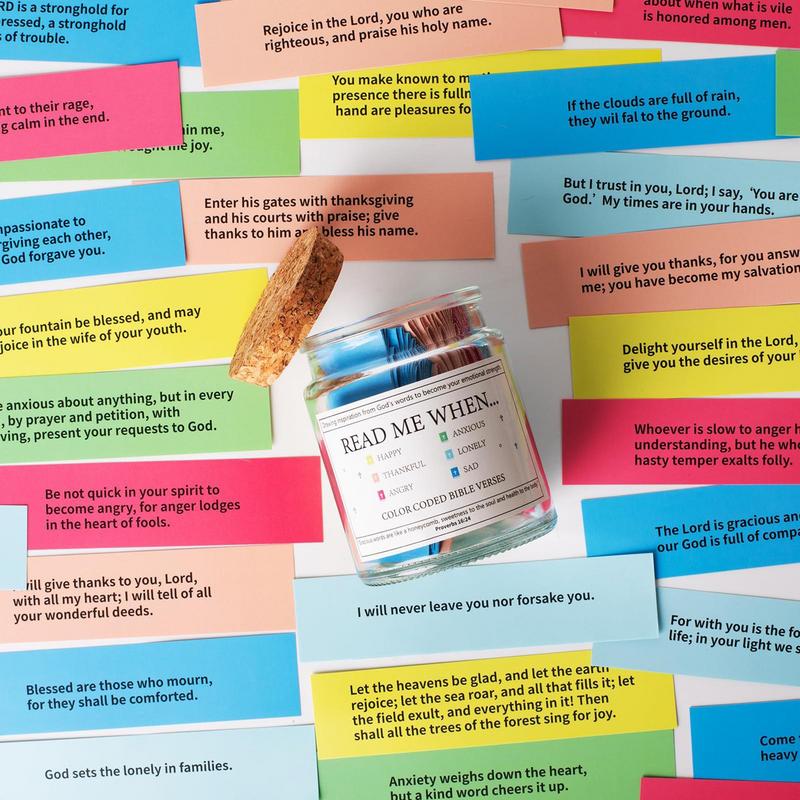 RD is a stronghold for
ressed, a stronghold
s of trouble.
Rejoice in the Lord, you who are
righteous, and praise his holy name.
about when what is vile
is honored among men.
nt to their rage,
g calm in the end.
in me,
me joy.
You make known to m
presence there is fulln
hand are pleasures fo
If the clouds are full of rain,
they wil fal to the ground.
Enter his gates with thanksgiving
and his courts with praise; give
thanks to him and bless his name.
But I trust in you, Lord; I say, ‘You are
God.’ My times are in your hands.
mpassionate to
rgiving each other,
God forgave you.
I will give you thanks, for you answ
me; you have become my salvation
our fountain be blessed, and may
joice in the wife of your youth.
Delight yourself in the Lord,
give you the desires of your
e anxious about anything, but in every
, by prayer and petition, with
ving, present your requests to God.
Whoever is slow to anger h
understanding, but he who
hasty temper exalts folly.
Drawing inspiration from God's words to become your emotional strength.
READ ME WHEN...
HAPPY
THANKFUL
ANGRY
ANXIOUS
LONELY
SAD
COLOR CODED BIBLE VERSES
Gracious words are like a honeycomb, sweetness to the soul and health to the body
Proverbs 16:24
Be not quick in your spirit to
become angry, for anger lodges
in the heart of fools.
The Lord is gracious and
our God is full of compa
will give thanks to you, Lord,
with all my heart; I will tell of all
your wonderful deeds.
I will never leave you nor forsake you.
For with you is the fo
life; in your light we s
Blessed are those who mourn,
for they shall be comforted.
Let the heavens be glad, and let the earth
rejoice; let the sea roar, and all that fills it; let
the field exult, and everything in it! Then
shall all the trees of the forest sing for joy.
Come
heavy
God sets the lonely in families.
Anxiety weighs down the heart,
but a kind word cheers it up.